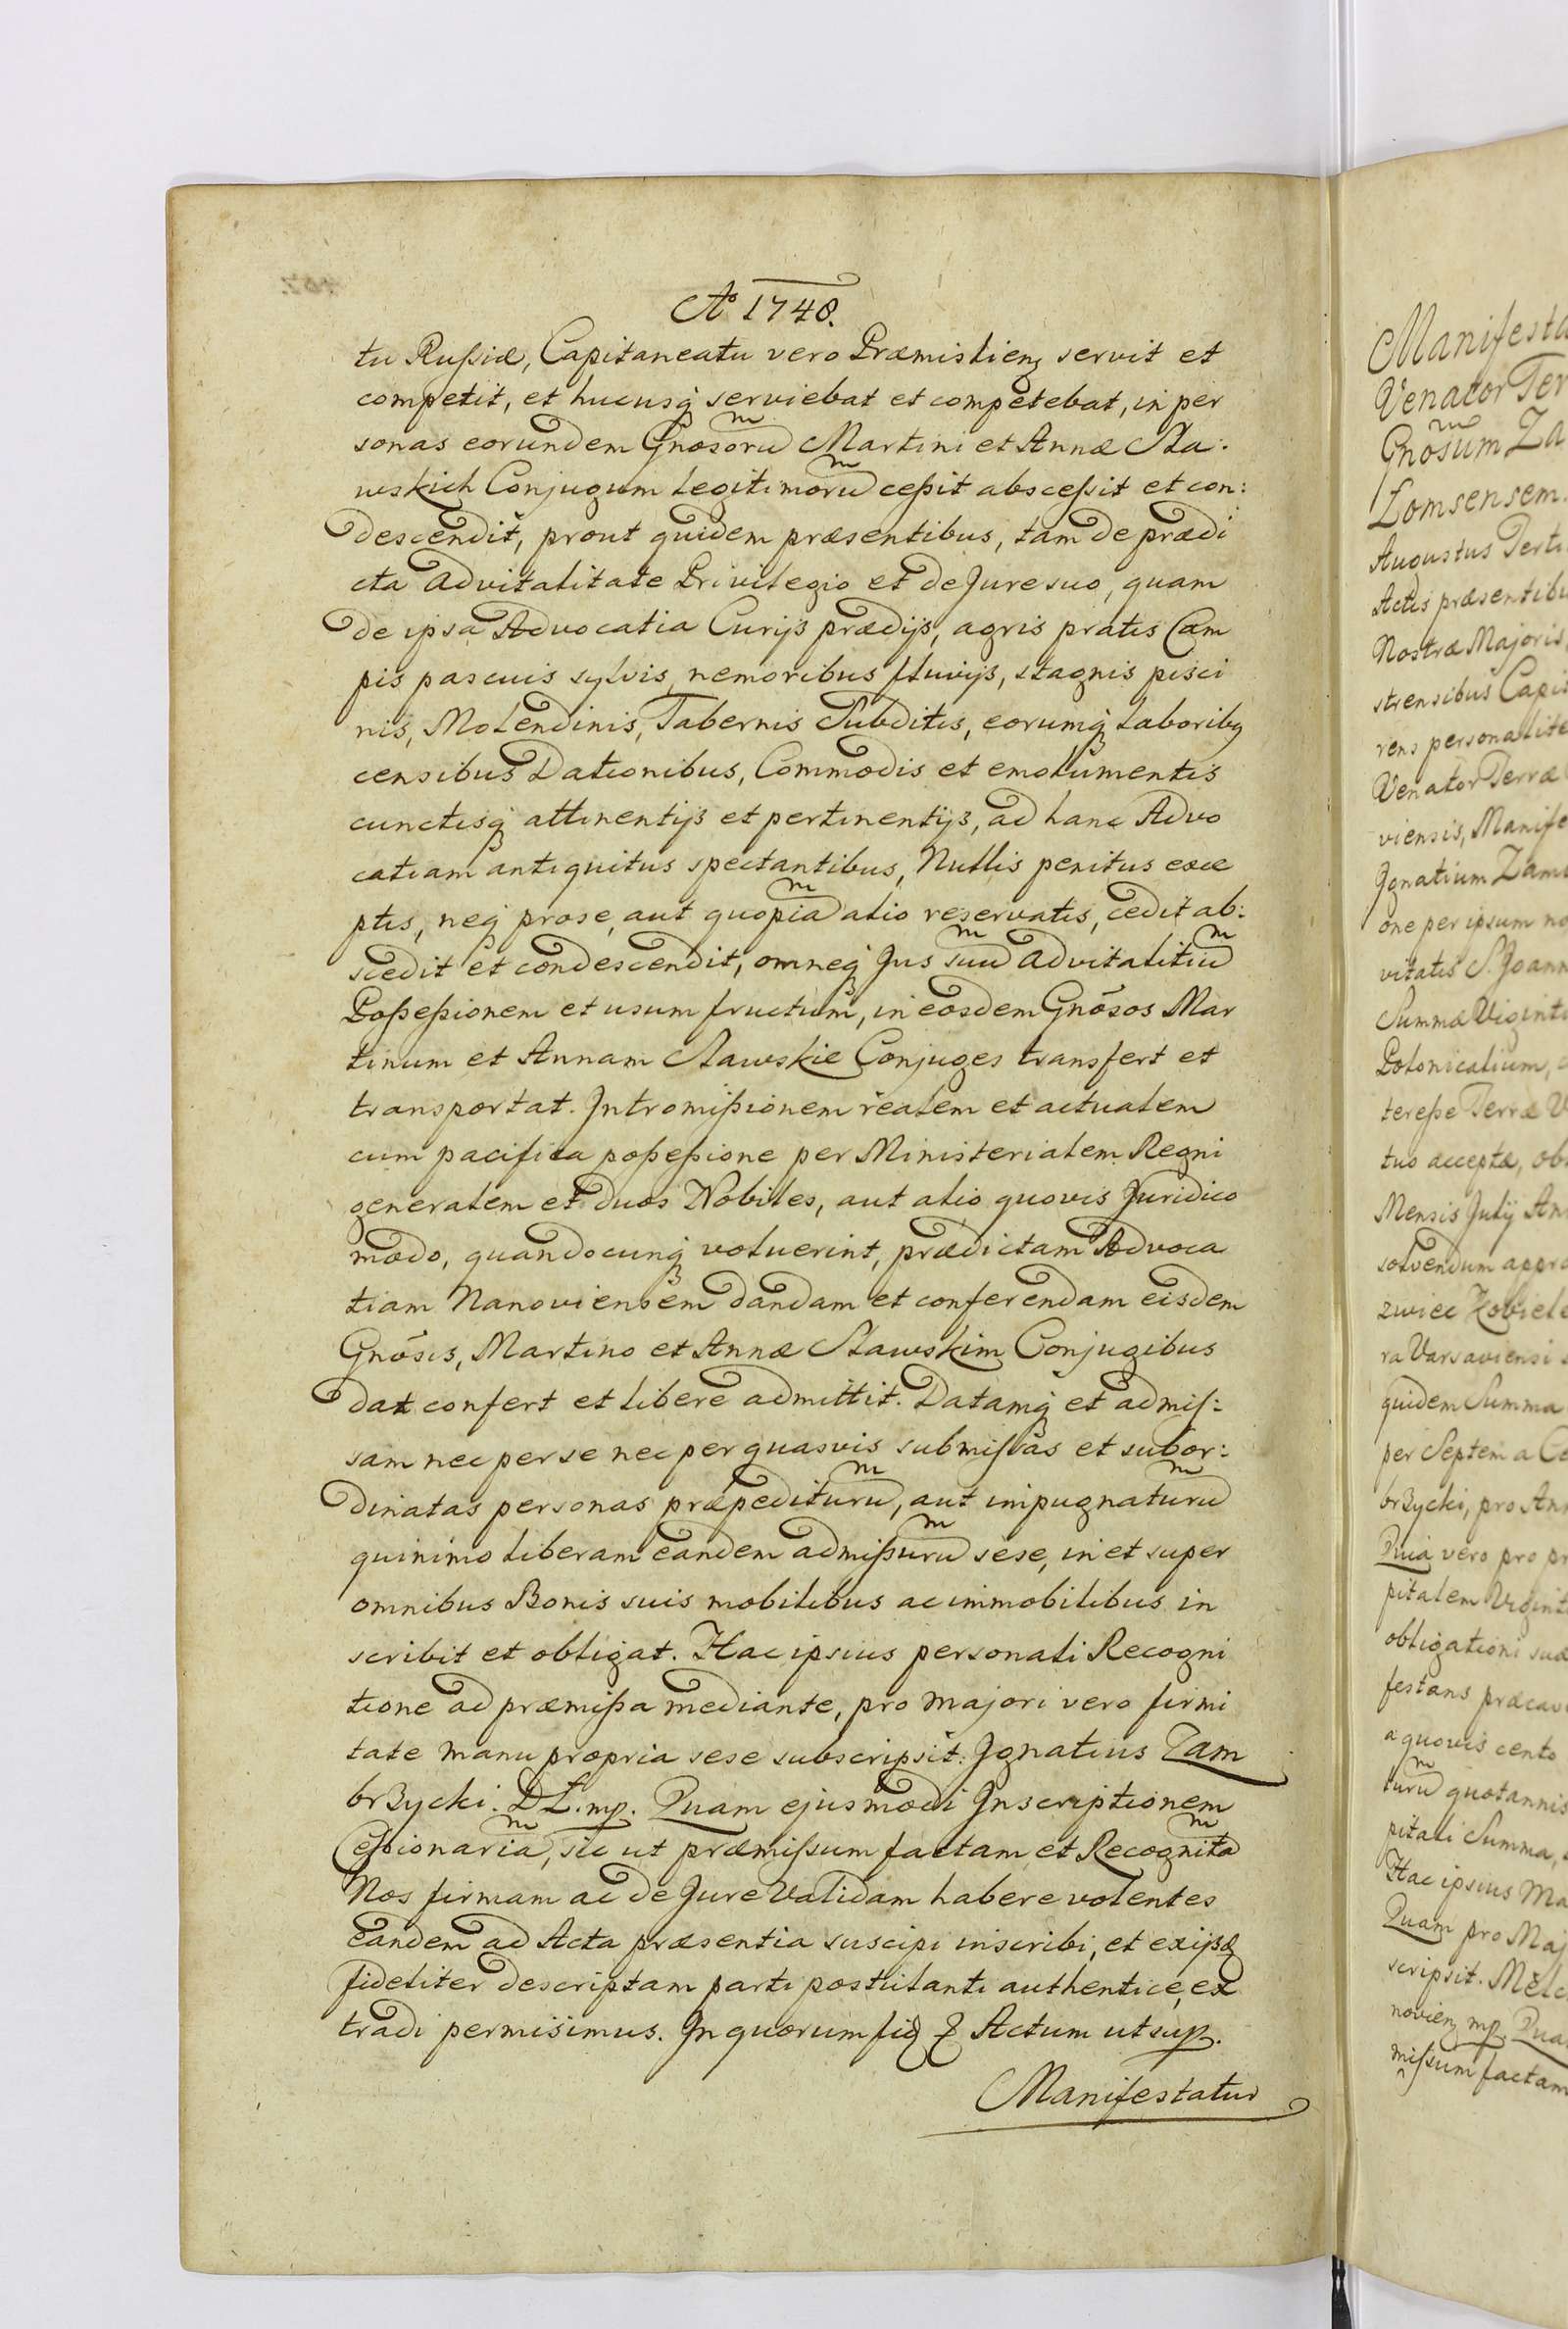 Aº 1748.
tu Rußiæ, Capitaneatu vero Præmisliens servit et
competit, et hucusq serviebat et competebat, in per
sonas eorundem Gnosorum Martini et Annæ Sta:
wskich Conjugum legitimorum ceßit abscessit et con:
descendit, prout quidem præsentibus, tam de prædi
cta advitalitate Privilegio et de Jure suo, quam
de ipsa Advocatia Curijs prædijs, agris pratis Cam
pis pascuis sylvis, nemoribus fluvijs, stagnis pisci
nis, Molendinis, Tabernis Subditis, eorumq laboribq
censibus Dationibus, Commodis et emolumentis
cunctisq attinentijs et pertinentijs, ad hanc Advo
catiam antiquitus spectantibus, Nullis penitus exce
ptis, neq prose, aut quopiam alio reservatis, cedit ab:
scedit et condescendit, omneq Jus suum advitalitium
Poßeßionem et usum fructum, in eosdem Gnõsos Mar
tinum et Annam Stawskie Conjuges transfert et
transportat. Intromißionem realem et actualem
cum pacifica poßeßione per Ministerialem Regni
generalem et duos Nobiles, aut alio quovis Juridico
modo, quandocunq voluerint, prædictam Advoca
tiam Nanoviensem dandam et conferendam eisdem
Gnõsis, Martino et Annæ Stawskim Conjugibus
dat confert et libere admittit. Datamq et admis:
sam nec per se nec per quasvis submissas et subor:
dinatas personas præpediturum, aut impugnaturum
quinimo liberam eandem admißurum sese, in et super
omnibus Bonis suis mobilibus ac immobilibus in
scribit et obligat. Hac ipsius personali Recogni
tione ad præmißa mediante, pro majori vero firmi
tate manu propria sese subscripsit: Ignatius Zam
brzycki. DL. mp. Quam ejusmodi Inscriptionem
Ceßionariam, sic ut præmissum factam et Recognitam
Nos firmam ac de Jure Validam habere volentes
eandem ad Acta præsentia suscipi inscribi, et exijsd
fideliter descriptam parti postulanti authentice, ex
tradi permisimus. In quorum fid & Actum ut sup.
Manifestatur
Manifesta
Venator Ter
Gnõsum Za
Lomsensem
Augustus Terti
Actis præsentibu
Nostræ Majoris
strensibus Capit
rens personalite
Venator Terræ
viensis, Manife
Ignatium Zam
one per ipsum no
vitatis S. Joann
Summæ Viginti
Polonicalium,
tereße Terræ V
tus acceptæ, ob
Mensis Julij An
solvendum appro
zwice Kobiele
ra Varsaviensi
quidem Summa
per Septem a Ce
brzycki, pro An
Quia vero pro pr
pitalem Vigint
obligationi suæ
festans præcav
a quovis cento
turum quotannis
pitali Summa,
Hac ipsius Ma
Quam pro Maj
scripsit. Melc
noviens mp. Qua
missum factam